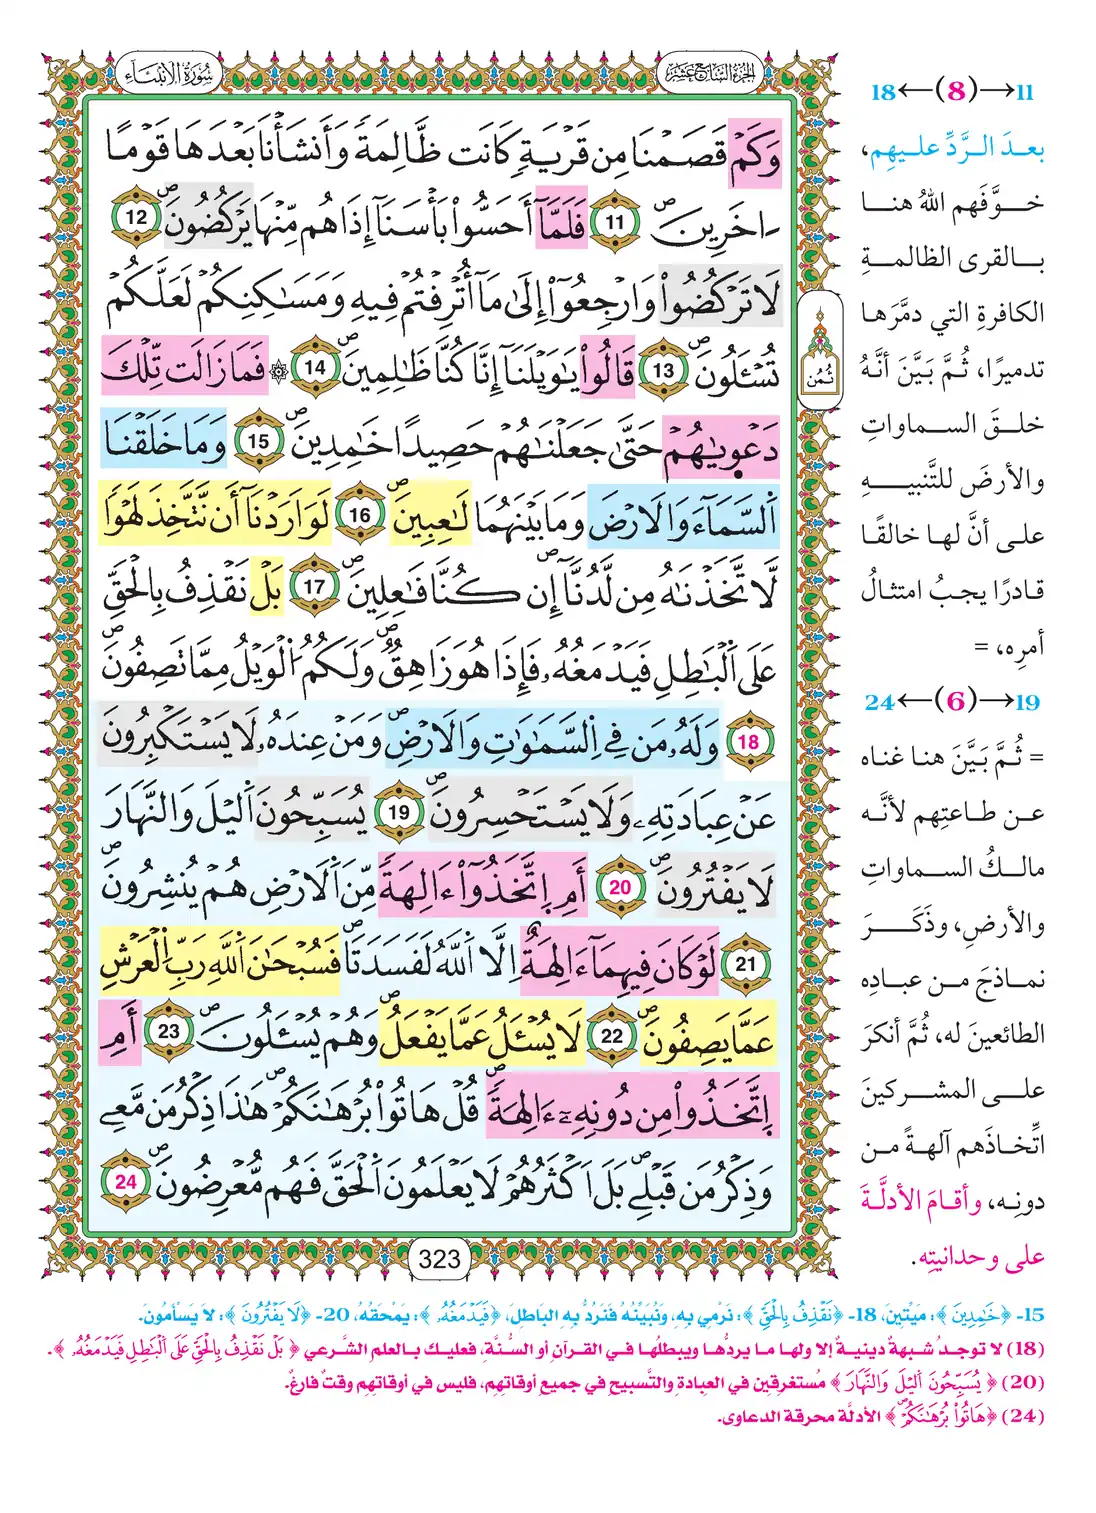 الجزء السابع عشر
سورة الأنبياء
وَكَمْ قَصَمْنَا مِن قَرْيَةٖ كَانَتْ ظَالِمَةٗ وَأَنشَأْنَا بَعْدَهَا قَوْمًا
ـاخَرِينَۖ 11 فَلَمَّآ أَحَسُّواْ بَأْسَنَآ إِذَا هُم مِّنْهَا يَرْكُضُونَۖ 12
لَا تَرْكُضُواْ وَارْجِعُوٓاْ إِلَىٰ مَآ أُتْرِفْتُمْ فِيهِ وَمَسَٰكِنِكُمْ لَعَلَّكُمْ
تُسْـَٔلُونَۖ 13 قَالُواْ يَٰوَيْلَنَآ إِنَّا كُنَّا ظَٰلِمِينَۖ 14 ۞ فَمَا زَالَت تِّلْكَ
دَعْوٜىٰهُمْ حَتَّىٰ جَعَلْنَٰهُمْ حَصِيدًا خَٰمِدِينَۖ 15 وَمَا خَلَقْنَا
اَلسَّمَآءَ وَالَارْضَ وَمَا بَيْنَهُمَا لَٰعِبِينَۖ 16 لَوَ اَرَدْنَآ أَن نَّتَّخِذَ لَهْوٗا
لَّاتَّخَذْنَٰهُ مِن لَّدُنَّآۖ إِن كُنَّا فَٰعِلِينَۖ 17 بَلْ نَقْذِفُ بِالْحَقِّ
عَلَى اَلْبَٰطِلِ فَيَدْمَغُهُۥ فَإِذَا هُوَ زَاهِقٞۖ وَلَكُمُ اُلْوَيْلُ مِمَّا تَصِفُونَۖ
18 وَلَهُۥ مَن فِے اِلسَّمَٰوَٰتِ وَالَارْضِۖ وَمَنْ عِندَهُۥ لَا يَسْتَكْبِرُونَ
عَنْ عِبَادَتِهِۦ وَلَا يَسْتَحْسِرُونَۖ 19 يُسَبِّحُونَ اَليْلَ وَالنَّهَارَ
لَا يَفْتُرُونَۖ 20 أَمِ اِتَّخَذُوٓاْ ءَالِهَةٗ مِّنَ اَلَارْضِ هُمْ يُنشِرُونَۖ
21 لَوْ كَانَ فِيهِمَآ ءَالِهَةٌ اِلَّا اَللَّهُ لَفَسَدَتَاۖ فَسُبْحَٰنَ اَللَّهِ رَبِّ اِلْعَرْشِ
عَمَّا يَصِفُونَۖ 22 لَا يُسْـَٔلُ عَمَّا يَفْعَلُۖ وَهُمْ يُسْـَٔلُونَۖ 23 أَمِ
اِتَّخَذُواْ مِن دُونِهِۦٓ ءَالِهَةٗۖ قُلْ هَاتُواْ بُرْهَٰنَكُمْۖ هَٰذَا ذِكْرُ مَن مَّعِے
وَذِكْرُ مَن قَبْلِےۖ بَلَ اَكْثَرُهُمْ لَا يَعْلَمُونَ اَلْحَقَّ فَهُم مُّعْرِضُونَۖ 24
ثُمُن
323
11→(8)←18
بعدَ الرَّدِّ عليهِم،
خوَّفَهم اللهُ هنا
بالقرى الظالمةِ
الكافرةِ التي دمَّرَها
تدميرًا، ثُمَّ بَيَّنَ أنَّهُ
خلقَ السماواتِ
والأرضَ للتَّنبيهِ
على أنَّ لها خالقًا
قادرًا يجبُ امتثالُ
أمرِه، =
19→(6)←24
= ثُمَّ بَيَّنَ هنا غناه
عن طاعتِهم لأنَّه
مالكُ السماواتِ
والأرضِ، وذَكَرَ
نماذجَ من عبادِه
الطائعينَ له، ثُمَّ أنكرَ
على المشركينَ
اتِّخاذَهم آلهةً من
دونِه، وأقامَ الأدلَّةَ
على وحدانيتِه.
15- ﴿خَٰمِدِينَ﴾: مَيِّتِينَ، 18- ﴿نَقْذِفُ بِالْحَقِّ﴾: نَرْمِي بِهِ، وَنُبَيِّنُهُ فَنَرُدُّ بِهِ البَاطِلَ، ﴿فَيَدْمَغُهُۥ﴾: يَمْحَقُهُ، 20- ﴿لَا يَفْتُرُونَ﴾: لَا يَسْأَمُونَ.
(18) لا توجدُ شبهةٌ دينيةٌ إلا ولها ما يردُّها ويبطلُها في القرآنِ أو السُّنَّةِ، فعليك بالعلم الشَّرعي ﴿بَلْ نَقْذِفُ بِالْحَقِّ عَلَى اَلْبَٰطِلِ فَيَدْمَغُهُۥ﴾.
(20) ﴿يُسَبِّحُونَ اَليْلَ وَالنَّهَارَ﴾ مُستغرقِين في العبادةِ والتَّسبيحِ في جميعِ أوقاتِهِم، فليس في أوقاتِهِم وقتٌ فارغٌ.
(24) ﴿هَاتُواْ بُرْهَٰنَكُمْۖ﴾ الأدلَّة محرقة الدعاوى.